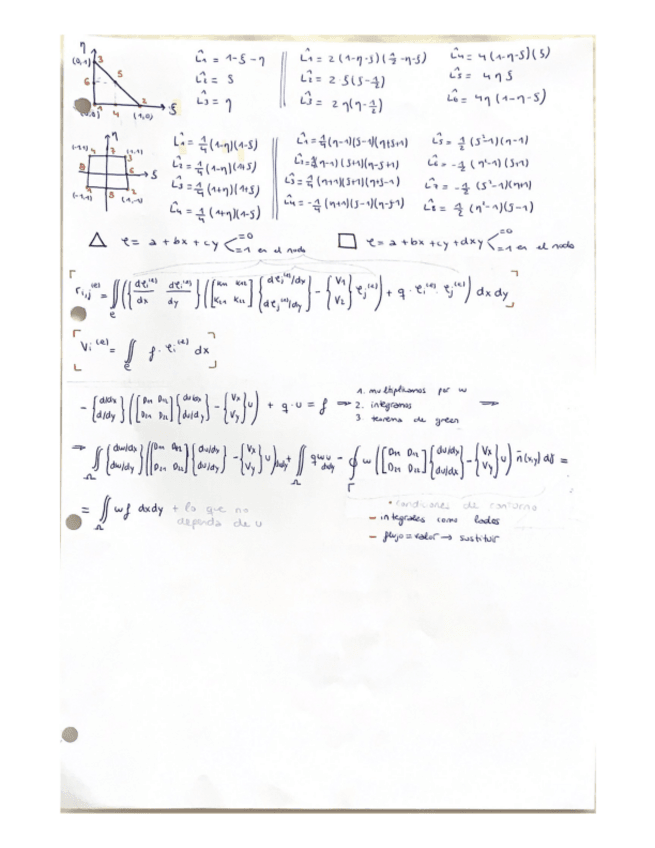 η
(0,1) 3
6 5
1 4 2 ξ
(0,0) (1,0)
L̂1 = 1-ξ-η
L̂2 = ξ
L̂3 = η
L̂1 = 2(1-η-ξ)(1/2-η-ξ)
L̂2 = 2ξ(ξ-1/2)
L̂3 = 2η(η-1/2)
L̂4 = 4(1-η-ξ)(ξ)
L̂5 = 4ηξ
L̂6 = 4η(1-η-ξ)
η
(-1,1) 4 7 (1,1)
3
8 6 ξ
(-1,-1) 1 5 2 (1,-1)
L̂1 = 1/4 (1-η)(1-ξ)
L̂2 = 1/4 (1-η)(1+ξ)
L̂3 = 1/4 (1+η)(1+ξ)
L̂4 = 1/4 (1+η)(1-ξ)
(η-1)(ξ-1)(η+ξ+1)
(η-1)(ξ+1)(η-ξ+1)
L̂3 = 1/4 (η+1)(ξ+1)(η+ξ-1)
L̂4 = -1/4 (η+1)(ξ-1)(η-ξ-1)
L̂5 = 1/2 (ξ²-1)(η-1)
L̂6 = -1/2 (η²-1)(ξ+1)
L̂7 = -1/2 (ξ²-1)(η+1)
L̂8 = 1/2 (η²-1)(ξ-1)
△ φ = a + bx + cy < =0 =1 en el nodo
□ φ = a + bx + cy + dxy < =0 =1 en el nodo
r i,j (e) = ∬e ({dφi(e)/dx dφi(e)/dy} ([K11 K12 K21 K22] {dφj(e)/dx dφj(e)/dy} - {V1 V2} φj(e)) + q · φi(e) · φj(e)) dx dy
Vi(e) = ∬e f · φi(e) dx
- {d/dx d/dy} ([D11 D12 D21 D22] {du/dx du/dy} - {Vx Vy} u) + q · u = f ⇒
1. multiplicamos por w
2. integramos
3 teorema de green
⇒
⇒ ∬Ω {dw/dx dw/dy} ([D11 D12 D21 D22] {du/dx du/dy} - {Vx Vy} u) dxdy + ∬Ω qwu dxdy - ∮Γ w ([D11 D12 D21 D22] {du/dx du/dx} - {Vx Vy} u) n̄(x,y) dS =
= ∬Ω wf dxdy + lo que no
depende de u
• condiciones de contorno
- integrales como lados
- flujo = valor → sustituir